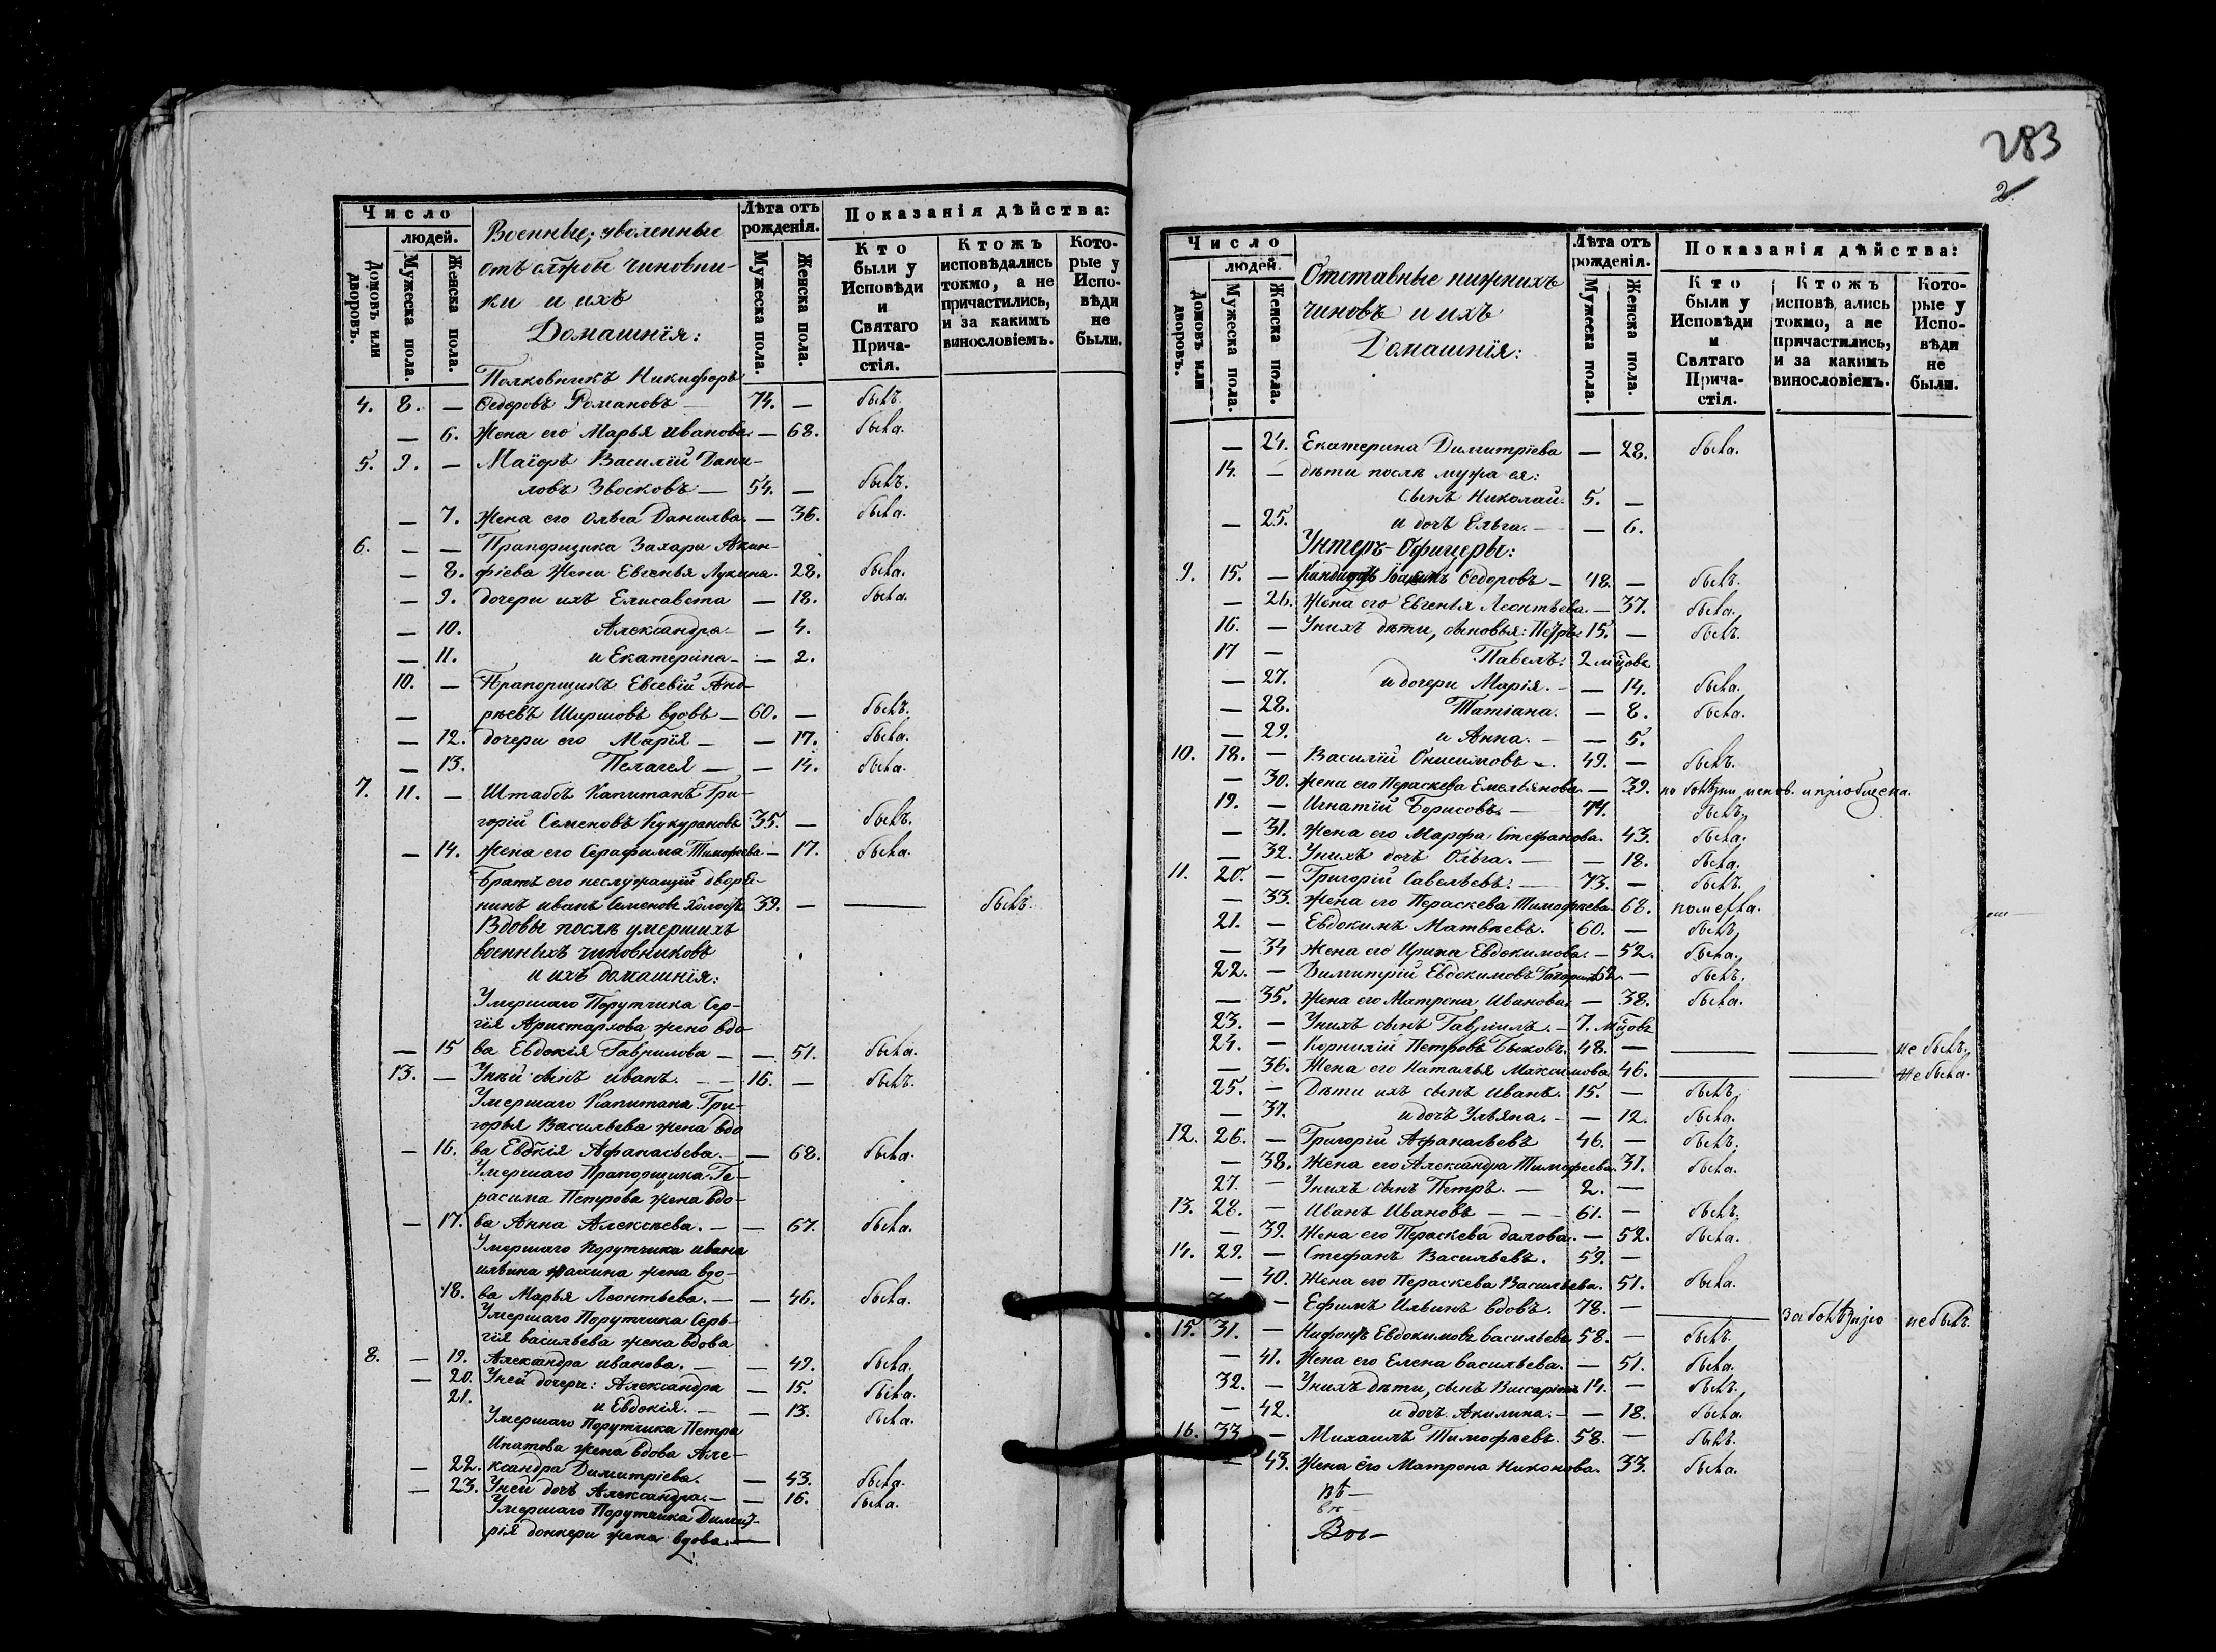 Число
людей.
Домовъ или дворовъ.
Мужеска пола.
Женска пола.
Военные, уволенные
отъ службы чиновни-
ки и ихъ
Домашнія:
Лѣта отъ рожденія.
Мужеска пола.
Женска пола.
Показанія дѣйства:
Кто были у Исповѣди и Святаго Прича- стія.
Ктожъ исповѣдались токмо, а не причастились, и за какимъ винословіемъ.
Кото- рые у Испо- вѣди не были.
Полковникъ Никифоръ
4. 8. — Ѳедоровъ Романовъ — 74. — былъ.
— 6. Жена его Марья Иванова. — 68. была.
5. 9. — Маіоръ Василій Дани-
ловъ Звосковъ — 54. — былъ.
— 7. Жена его Ольга Данилва. — 36. была.
6. — — Прапорщика Захара Акин-
— 8. фіева Жена Евгенья Лукина. 28. была.
— 9. дочери ихъ Елисавета — 18. была.
— 10. Александра — — 4.
— 11. и Екатерина — — 2.
10. — Прапорщикъ Евсевій Анд-
— рѣевъ Ширшовъ вдовъ — 60. — былъ.
— 12. дочери его Марія — — 17. была.
— 13. Пелагея — — 14. была.
7. 11. — Штабсъ Капитанъ Гри-
горій Семеновъ Кукурановъ 35. — былъ.
— 14. Жена его Серафима Тимофеева — 17. была.
Братъ его неслужащій дворя-
нинъ Иванъ Семеновъ холостъ 39. — — былъ.
Вдовы послѣ умершихъ
военныхъ чиновниковъ
и ихъ домашнія:
Умершаго Порутчика Сер-
гія Аристархова жено вдо
— 15 ва Евдокія Гаврилова — — 51. была.
13. — У ней сынъ Иванъ. — — 16. — былъ.
Умершаго Капитана Гри-
горья Васильева жена вдо
— 16. ва Евдкія Афанасьева. — — 68. была.
Умершаго Прапорщика Ге-
расима Петрова жена вдо-
— 17. ва Анна Алексѣева. — — 67. была.
Умершаго Порутчика Ивана
Ильина жена вдо-
18. ва Марья Леонтьева. — — 46. была.
Умершаго Порутчика Серь-
гія Васильева жена вдова
8. — 19. Александра Иванова. — — 49. была.
— 20. У ней дочери: Александра — 15. была.
21. и Евдокія. — — 13. была.
Умершаго Порутчика Петра
Ипатова жена вдова Але-
— 22. ксандра Димитріева. — 43. была.
— 23. У ней дочь Александра. — — 16. была.
Умершаго Порутчика Димит-
рія донкери жена вдова. —
283
2
Число
людей.
Домовъ или дворовъ.
Мужеска пола.
Женска пола.
Отставные нижнихъ
чиновъ и ихъ
Домашнія:
Лѣта отъ рожденія.
Мужеска пола.
Женска пола.
Показанія дѣйства:
Кто были у Исповѣди и Святаго Прича- стія.
Ктожъ исповѣ ались токмо, а не причастились, и за какимъ винословіемъ.
Кото- рые у Испо- вѣди не были.
— 24. Екатерина Димитріева — 28. была.
14. — дѣти послѣ мужа ея:
сынъ Николай. 5. —
— 25. и дочь Ольга. — — 6.
Унтеръ-Офицеры:
9. 15. — Ѳедоровъ — 48. — былъ.
— 26. Жена его Евгенья Леонтьева. — 37. была.
16. — У нихъ дѣти, сыновья: Петръ 15. — былъ.
17 — Павелъ. 2 мцовъ
— 27. и дочери Марія. — — 14. была.
— 28. Татіана. — 8. была.
— 29. и Анна. — — 5.
10. 18. — Василій Онисимовъ — 49. — былъ.
— 30. Жена его Пераскева Емельянова. — 39. по болѣзни испов. и пріобщена.
19. — Игнатій Борисовъ. — 74. былъ.
— 31. Жена его Марфа Стефанова. 43. была.
— 32. У нихъ дочь Ольга. — — 18. была.
11. 20. — Григорій Савельевъ. — 73. — былъ.
— 33. Жена его Пераскева Тимофеева. 68.
21. — Евдокимъ Матвѣевъ. 60. — былъ.
— 34 Жена его Ирина Евдокимова. — 52. была.
22. — Димитрій Евдокимовъ 52. — былъ.
— 35. Жена его Матрона Иванова. — 38. была.
23. — У нихъ сынъ Гавріилъ. — 7. мцовъ
24. — Корнилій Петровъ Быковъ. 48. — — — не былъ.
— 36. Жена его Наталья Максимова. 46. — — не была.
25. — Дѣти ихъ сынъ Иванъ. 15. — былъ.
— 37. и дочь Ульяна. — — 12. была.
12. 26. — Григорій Афанасьевъ 46. — былъ.
— 38. Жена его Александра Тимофеева. 31. была.
27. — У нихъ сынъ Петръ. — 2. —
13. 28. — Иванъ Ивановъ — — 61. — былъ.
— 39. Жена его Пераскева далова. — 52. была.
14. 29. — Стефанъ Васильевъ. 59. —
— 40. Жена его Пераскева Васильева. 51. была.
— Ефимъ Ильинъ вдовъ. 78. — — за болѣзнію не былъ.
15. 31. — Нифонтъ Евдокимовъ Васильевъ 58. — былъ.
— 41. Жена его Елена Васильева. — 51. была.
32. — У нихъ дѣти, сынъ Виссаріонъ 14. — былъ.
— 42. и дочь Акилина. — — 18. была.
16. 33 — Михаилъ Тимофѣевъ. 58. — былъ.
— 43. Жена его Матрона Никонова. 33. была.